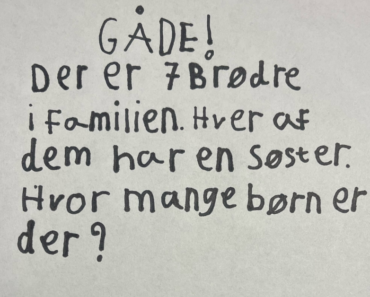 GÅDE!
Der er 7 Brødre
i familien. Hver af
dem har en søster.
Hvor mange børn er
der?